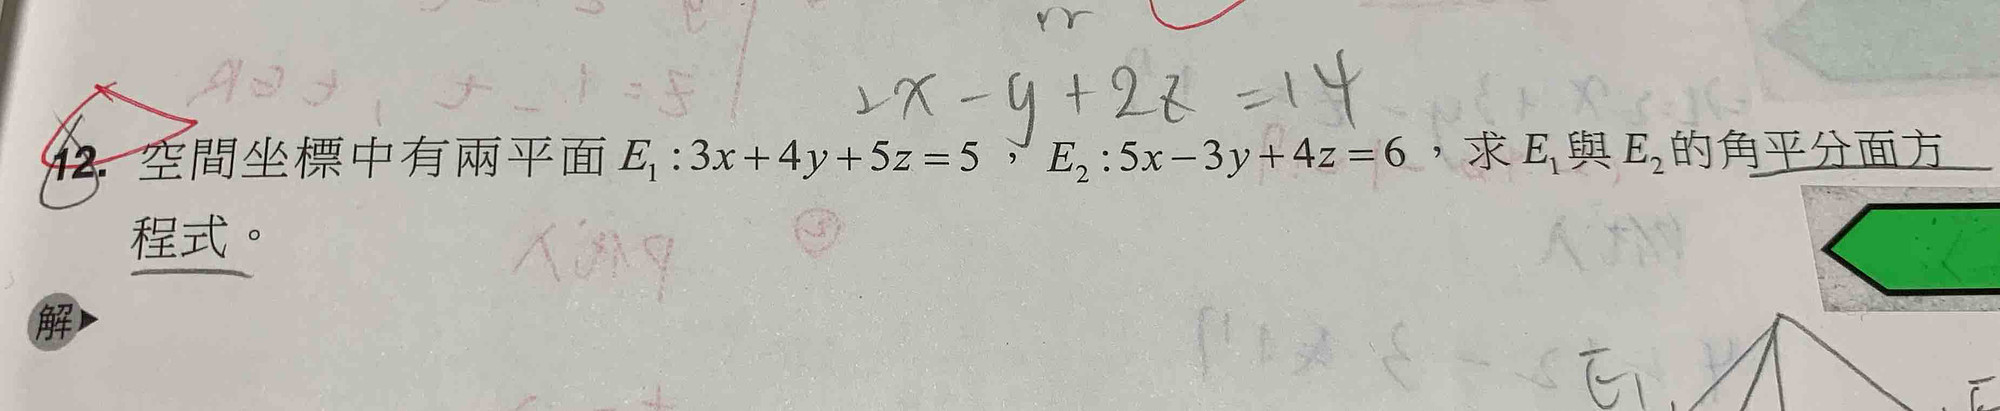 2x-y+2z=14
12. 空間坐標中有兩平面 E₁:3x+4y+5z=5,E₂:5x-3y+4z=6,求 E₁ 與 E₂ 的角平分面方
程式。
解
E₁